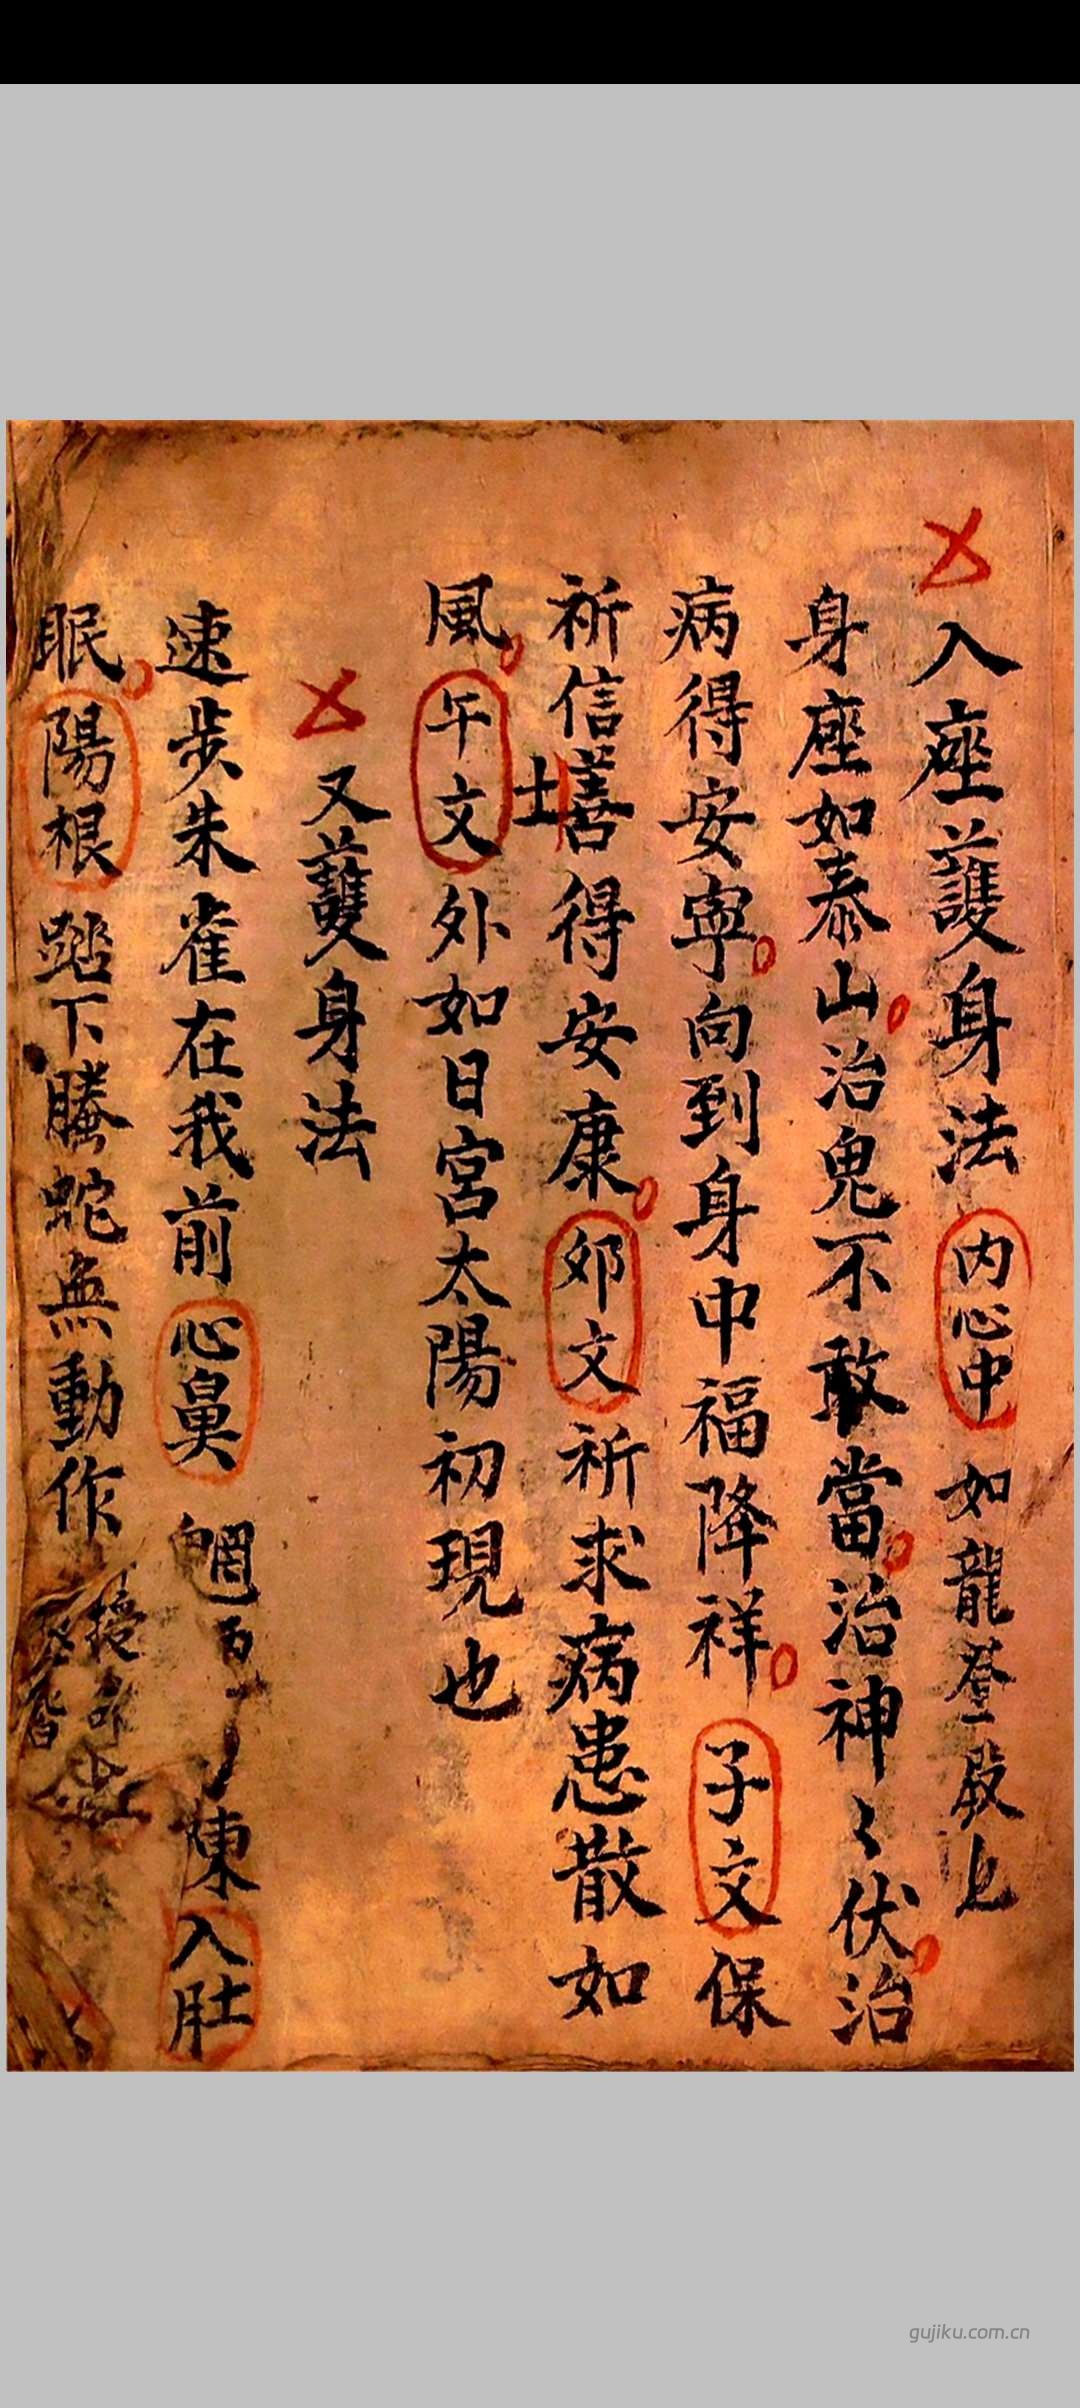 入座護身法内心中如龍登殿上
身座如泰山治鬼不敢當治神々伏治
病得安寕向到身中福降祥子文保
祈信士善得安康夘文祈求病患散如
風午文外如日宮太陽初現也
又護身法
速步朱雀在我前心鼻 陳入肚
眠陽根踏下騰蛇無動作
gujiku.com.cn